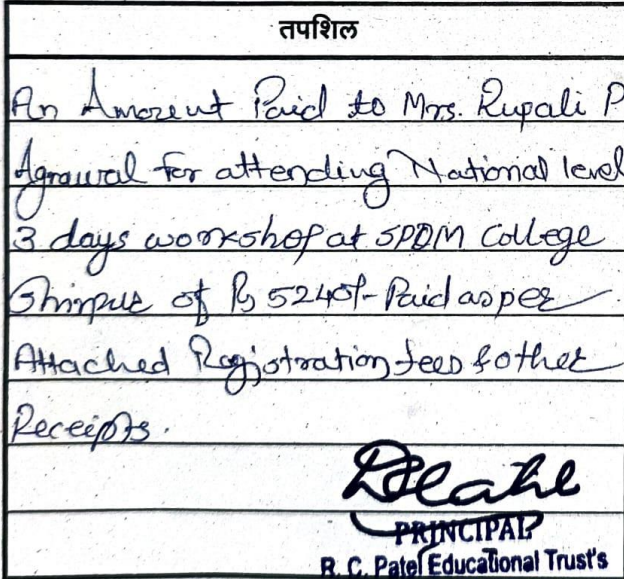 तपशिल
An Amount Paid to Mrs. Rupali P
Agrawal for attending National level
3 days workshop at SPDM College
Shirpur of Rs 5240/- Paid as per
Attached Registration fees & other
Receipts.
PRINCIPAL
R. C. Patel Educational Trust's